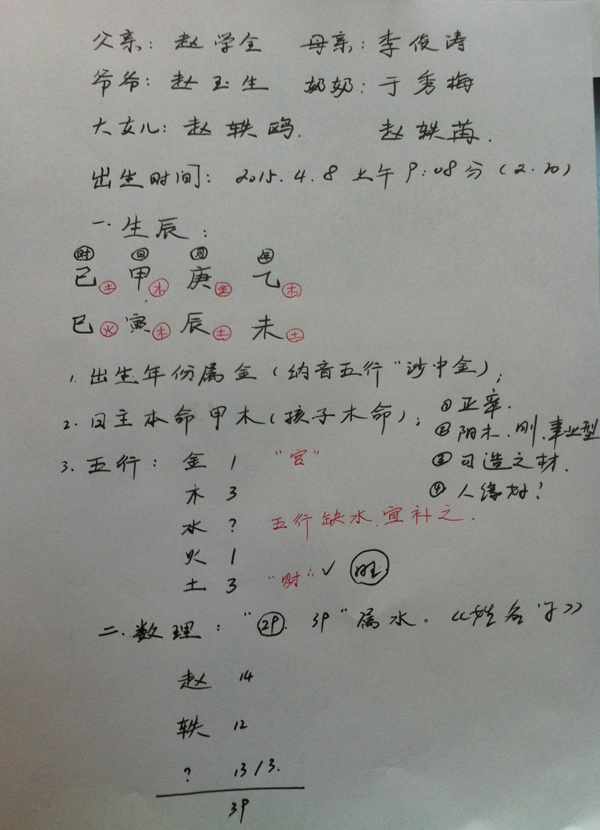 父亲：赵学全 母亲：李俊涛
爷爷：赵玉生 奶奶：于秀梅
大女儿：赵轶鸥. 赵轶苒.
出生时间：2015.4.8 上午 9:08分(2.20)
一.生辰：
时 日 月 年
己土 甲木 庚金 乙木
巳火 寅木 辰土 未土
1.出生年份属金(纳音五行"沙中金);
2.日主本命甲木(孩子木命);
①正率.
②阳木.刚.事业型
③可造之材.
④人缘好?
3.五行：金 1 "官"
木 3
水 ? 五行缺水.宜补之.
火 1
土 3 "财"✓ 旺
二.数理："29. 39"属水。《姓名学》
赵 14
轶 12
? 13/3.
39